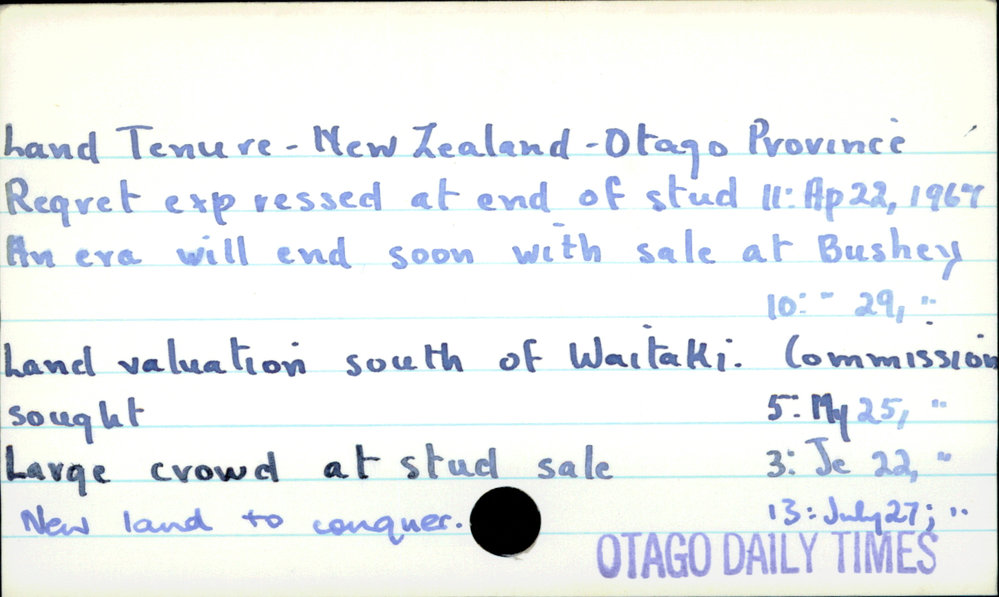 Land Tenure - New Zealand - Otago Province
Regret expressed at end of stud 11: Ap 22, 1967
An era will end soon with sale at Bushey
10: " 29, "
Land valuation south of Waitaki. Commission
sought 5: My 25, "
Large crowd at stud sale 3: Je 22, "
New land to conquer. 13: July 27; "
OTAGO DAILY TIMES